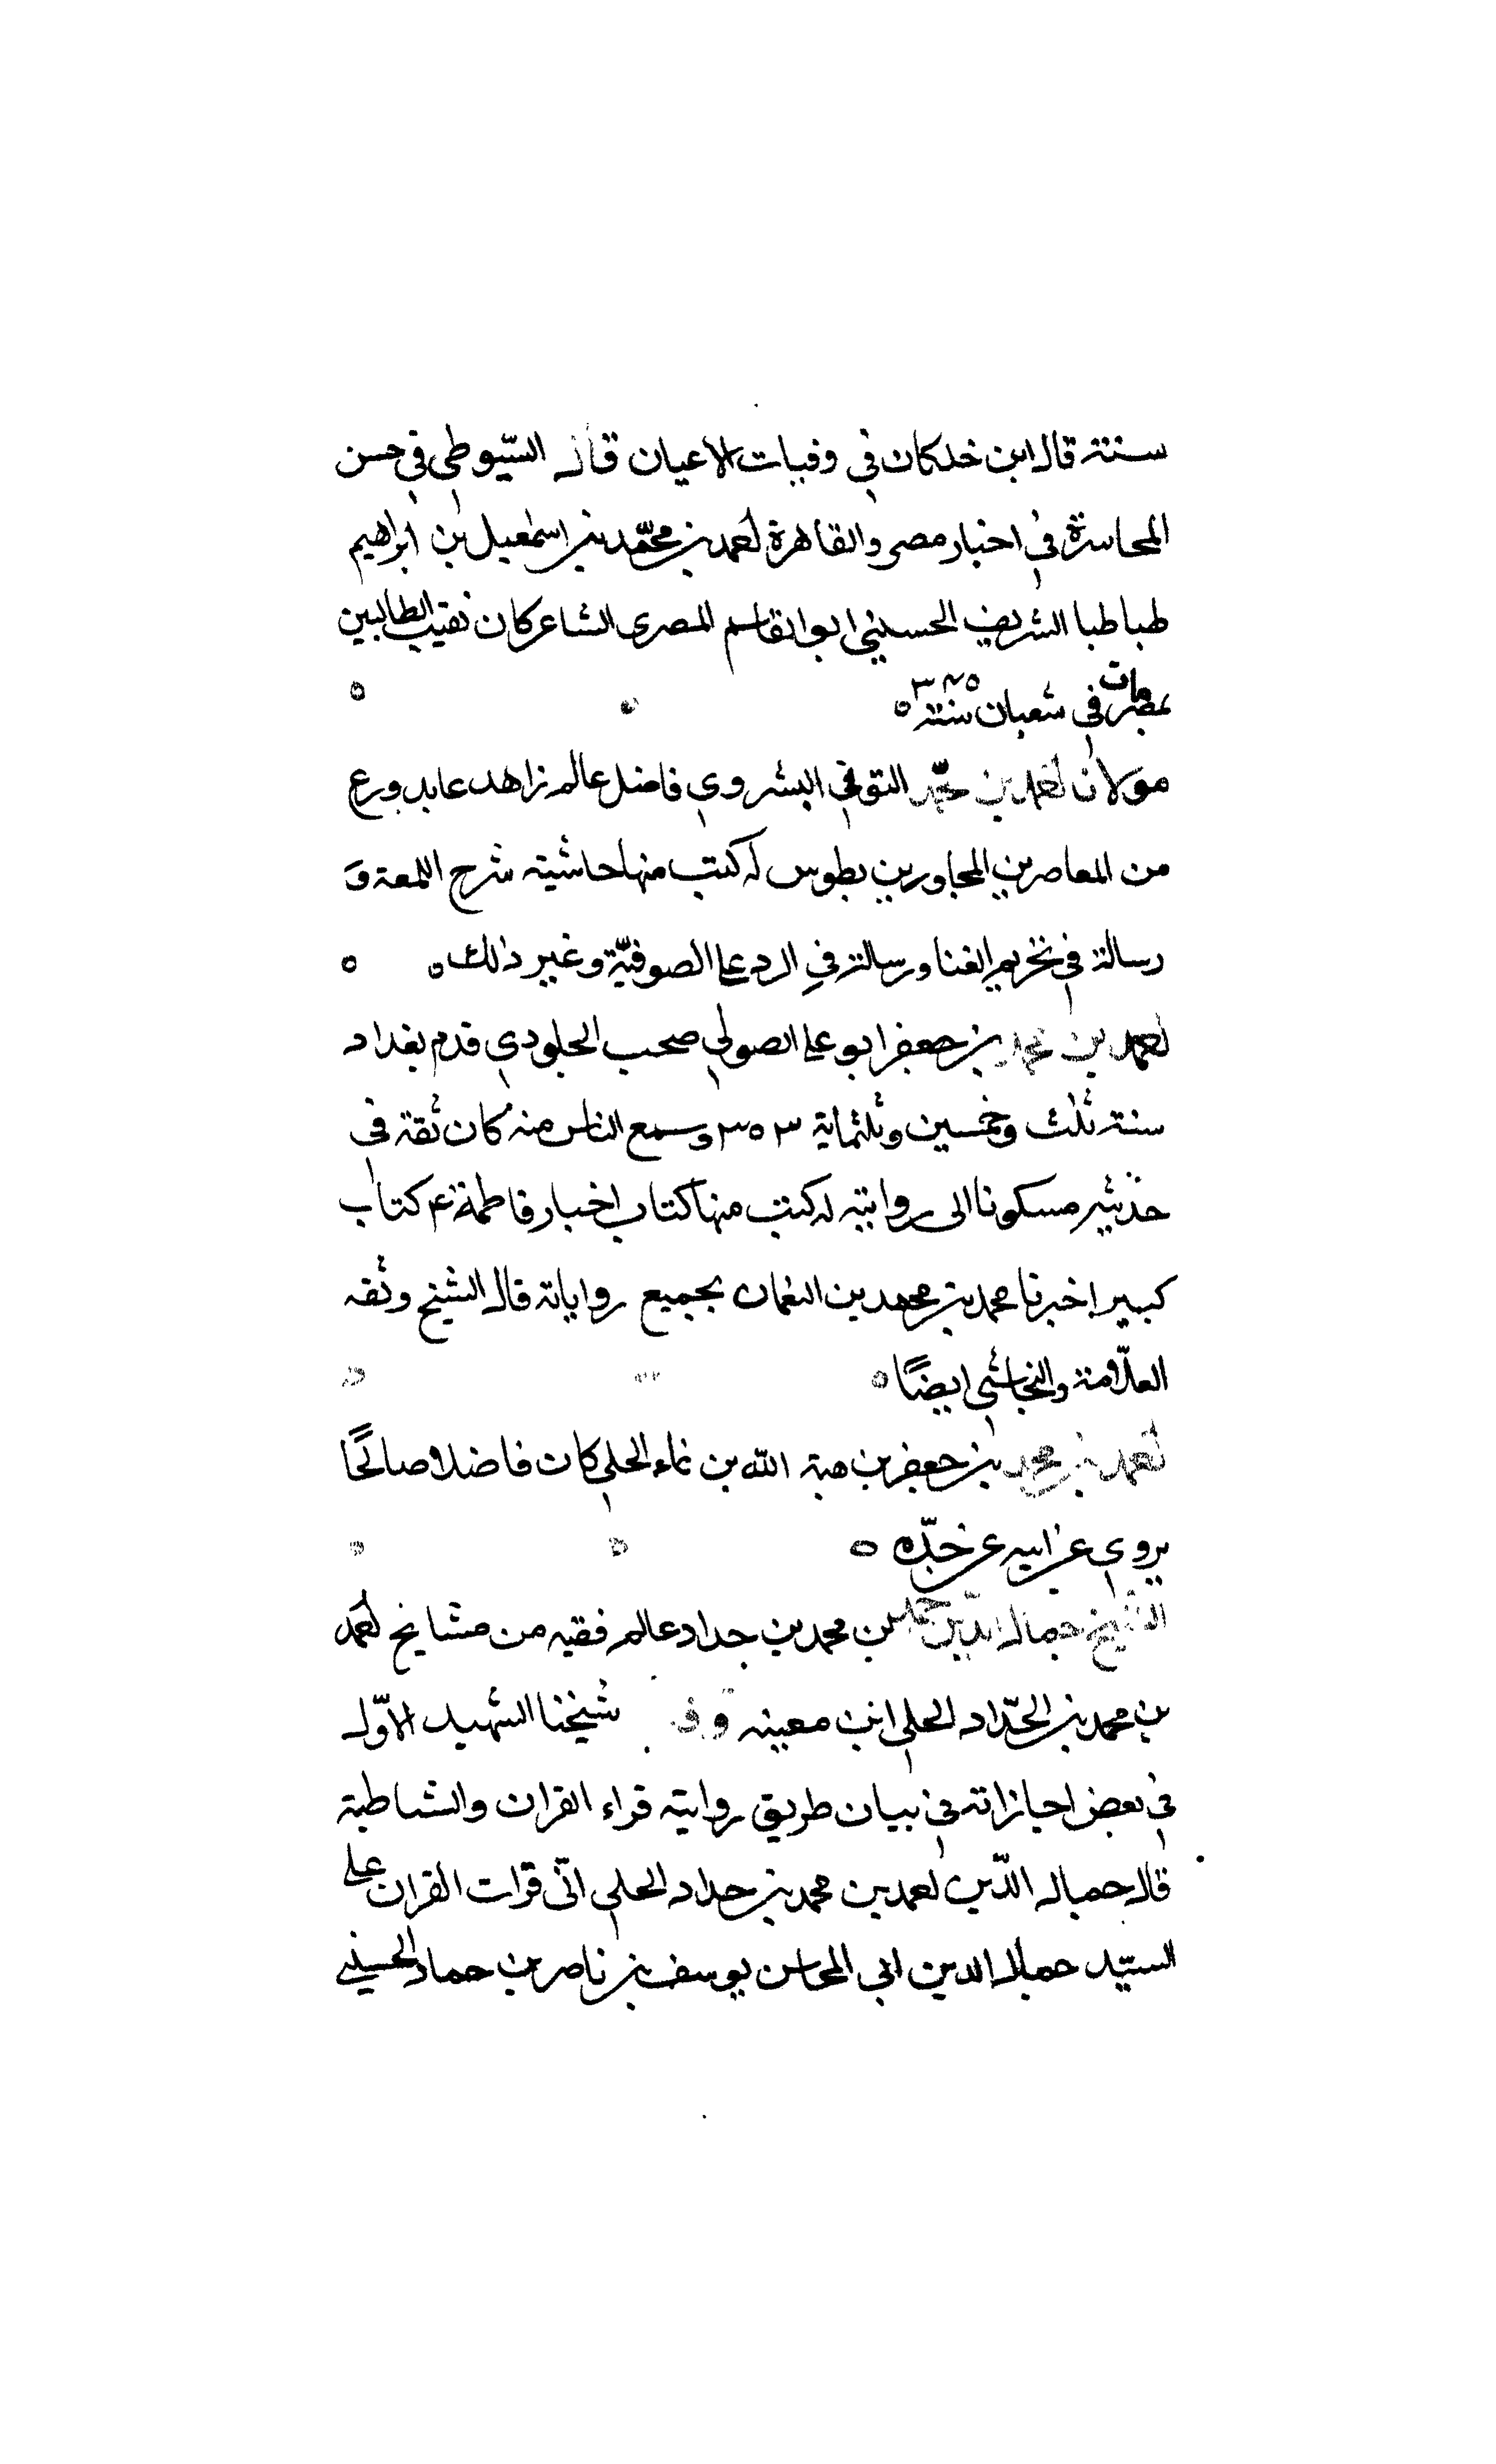 سنة قال ابن خلكان في وفيات الاعيان قال السّيوطي في حسن
المحاسرة في اخبار مصر والقاهرة احمد بن محمّد بن اسمعيل بن ابراهيم
طباطبا الشريف الحسيني ابو القاسم المصري الشاعر كان نقيب الطالبين
بمصر مات في شعبان سنة ٣٤٥
مولانا احمد بن محمّد التوني البشروي فاضل عالم زاهد عابد ورع
من المعاصرين المجاورين بطوس له كتب منها حاشية شرح اللمعة و
رسالة في تحريم الغنا ورسالة في الرد على الصوفيّة وغير ذلك
احمد بن محمد بن جعفر ابو على الصولي صحب الجلودي قدم بغداد
سنة ثلث وخمسين وثلثماية ٣٥٣ وسمع الناس منه كان ثقة في
حديثه مسكونا الى روايته له كتب منها كتاب اخبار فاطمة ع كتاب
كبير اخبرنا محمد بن محمد بن النعمان بجميع رواياته قال الشيخ وثقه
العلّامة والنجاشي ايضًا
احمد بن محمد بن جعفر بن هبة الله بن نماء الحلي كان فاضلا صالحًا
يروي عن ابيه عن جدّه
الشيخ جمال الدّين احمد بن محمد بن حداد عالم فقيه من مشايخ احمد
بن محمد بن الحدّاد الحلي ابن معية و شيخنا الشهيد الاوّل
في بعض اجازاته في بيان طريق رواية قراء القران والشاطبة
قال جمال الدّين احمد بن محمد بن حداد الحلي انّي قرّات القران على
السيّد جمال الدين ابي المحاسن يوسف بن ناصر بن حماد الحسيني